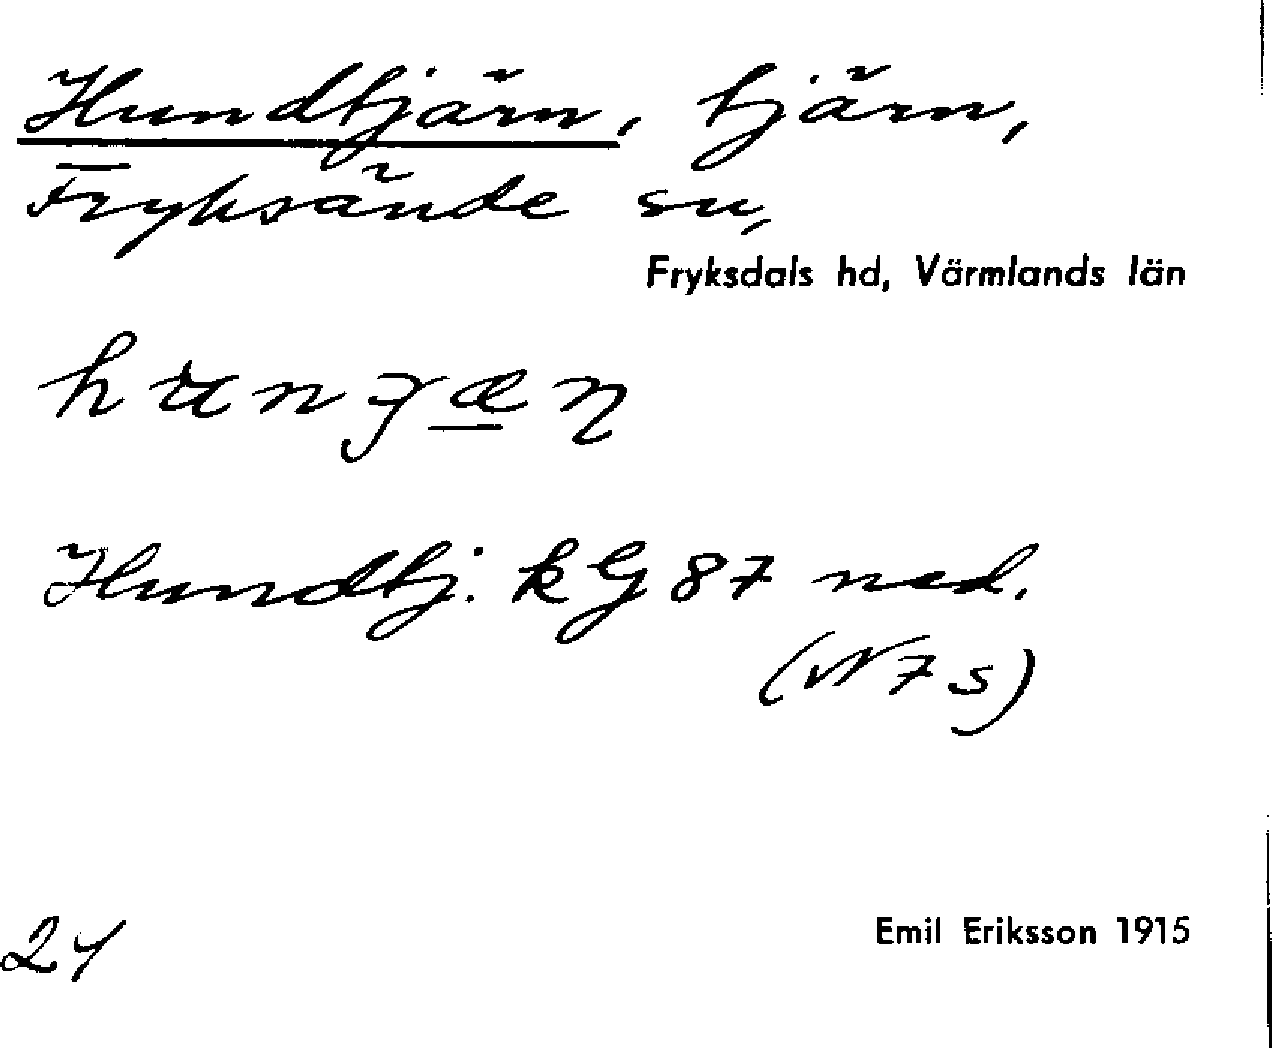 Hundtjärn, tjärn,
Fryksände sn,
Fryksdals hd, Värmlands län
Hundtj. kG 87 ned.
(N 7 s)
Emil Eriksson 1915
24